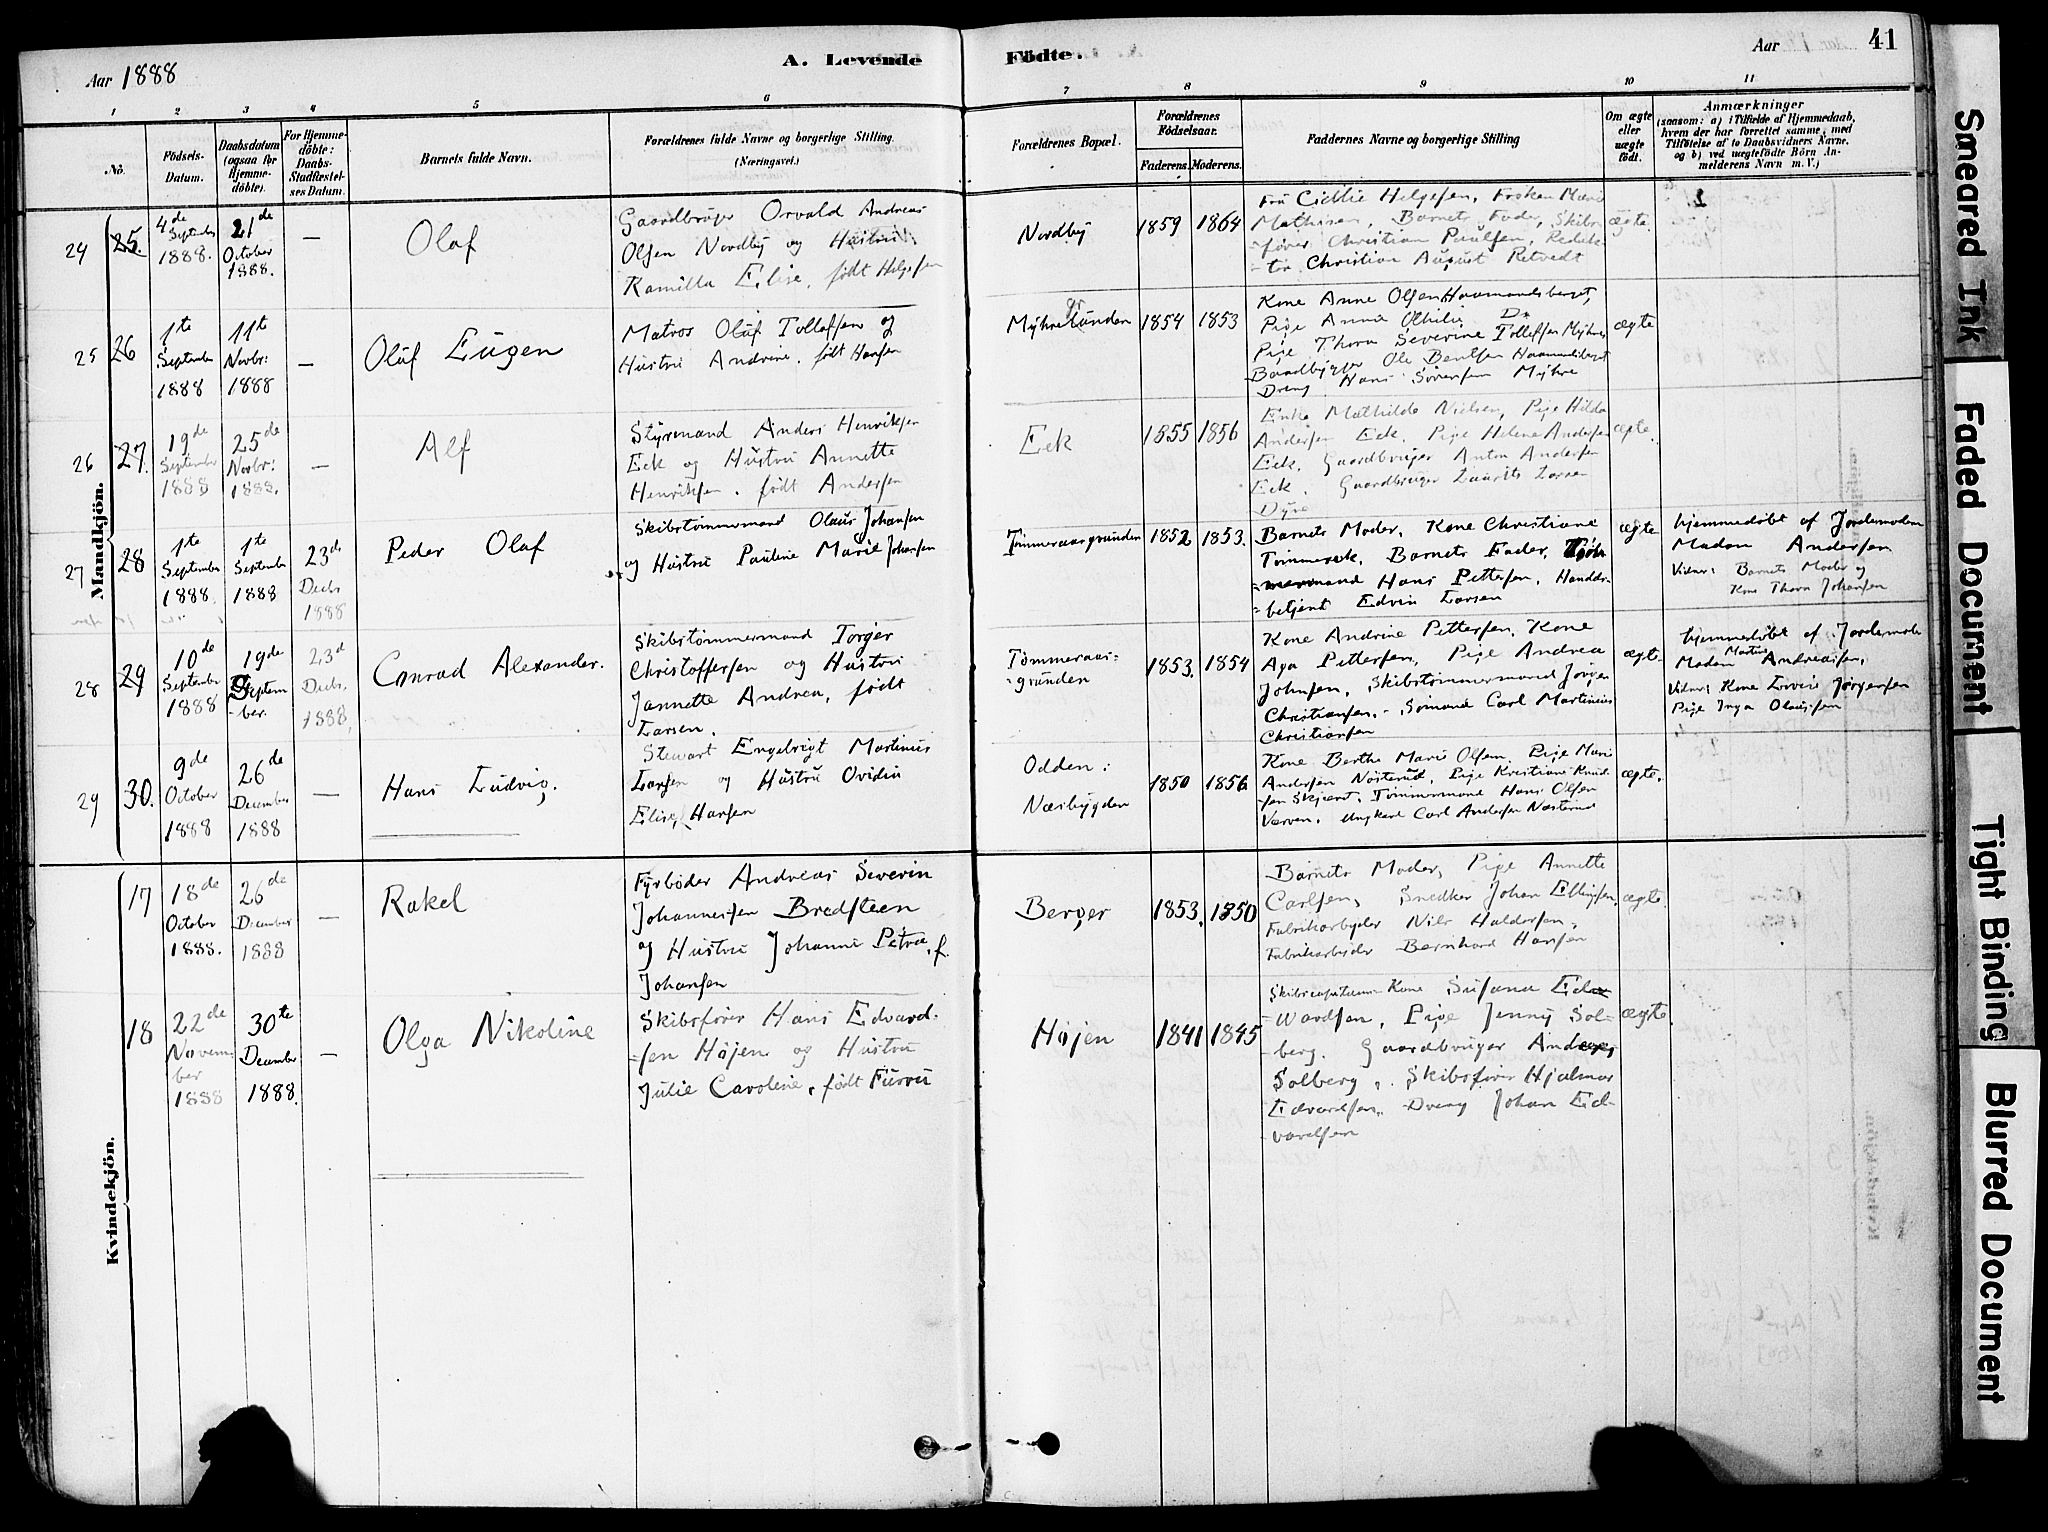 Aar 1888
A. Levende
Födte.
Aar
41
1
2
3
4
5
6
7
8
9
10
11
No.
Födsels-
Datum.
Daabsdatum
(ogsaa for
Hjemme-
döbte).
For Hjemme-
döbte:
Daabs-
Stadfæstel-
ses Datum.
Barnets fulde Navn.
Forældrenes fulde Navne og borgerlige Stilling.
(Næringsvei.)
Forældrenes Bopæl.
Forældrenes
Födselsaar.
Faderens.
Moderens.
Faddernes Navne og borgerlige Stilling
Om ægte
eller
uægte
födt.
Anmærkninger
(saasom: a) i Tilfælde af Hjemmedaab,
hvem der har forrettet samme, med
Tilføielse af to Daabsvidners Navne,
og b) ved uægtefödte Börn An-
melderens Navn m. V.)
Mandkjön.
24
25.
4de
September
1888.
21de
October
1888.
—
Olaf
Gaardbruger Osvald Andreas
Olsen Nordby og Hustru
Kamilla Elise, født Helgesen
Nordby
1859
1864
Fru Helgesen, Frøken Marie
Mathisen, Barnets Fader, Skibs-
fører Christian Paulsen, Redak-
tør Christian August Retvedt
ægte.
25
26
1te
September
1888
11te
Novbr:
1888
—
Oluf Eugen
Matros Oluf Tollefsen og
Hustru Andrine, født Hansen
Myhrelunden
1854
1853
Kone Anne Olsen Haamandsberget,
Pige Annie Othilie Do
Pige Thora Severine Tollefsen Myhre,
Baadbygger Ole Bentsen Haamandsberget
Dreng Hans Sørensen Myhre
ægte
26
27.
19de
September
1888
25de
Novbr:
1888.
—
Alf
Styrmand Anders Henriksen
Eek og Hustru Annette
Henriksen, født Andersen
Eek
1855
1856
Enke Mathilde Nielsen, Pige Hilda
Andersen Eek, Pige Helene Andersen
Eek, Gaardbruger Anton Andersen
Eek, Gaardbruger Laurits Larsen
Dyre
ægte.
27
28
1te
September
1888.
1te
September
1888
23de
Decbr
1888
Peder Olaf
Skibstømmermand Olaus Johansen
og Hustru Pauline Marie Johansen
Tømmeraasgrunden
1852
1853.
Barnets Moder, Kone Christiane
Tømmerek, Barnets Fader,
mand Hans Pettersen, Handels-
betjent Edvin Larsen
ægte
Hjemmedøbt af Jordemoder
Madam Andersen
Vidner: Barnets Moder og
Kone Thora Johansen
28
29
10de
September
1888
19de
Septem
-ber.
23d
Decbr.
1888.
Conrad Alexander.
Skibstømmermand Torger
Christoffersen og Hustru
Jannette Andrea, født
Larsen.
Tømmeraas-
-grunden
1853.
1854
Kone Andrine Pettersen, Kone
Aga Pettersen, Pige Andrea
Johnsen, Skibstømmermand Jørgen
Christiansen, Sømand Carl Martinius
Christiansen
ægte
Hjemmedøbt af Jordemoder
Madam Andreasen,
Vidner: Kone Lovise Jørgensen
Pige Inga Olaussen
29
30.
9de
October
1888
26de
December
1888
—
Hans Ludvig.
Stewart Engebrigt Martinius
Larsen og Hustru Ovidia
Elise, Hansen
Odden:
Næsbygden
1850
1856
Kone Berthe Marie Olsen, Pige Marie
Andersen Nøsterud, Pige Kristiane Knud-
sen Skjært, Tømmermand Hans Olsen
Værven, Ungkarl Carl Andersen Næsterud
ægte.
Kvindekjön.
17
18de
October
1888.
26de
December
1888
—
Rakel
Fyrbøder Andreas Severin
Johannessen Bredsteen
og Hustru Johanne Petrea, f.
Johansen
Berger
1853.
1850
Barnets Moder, Pige Annette
Carlsen, Snedker Johan Ellingsen,
Fabrikarbyder Nils Haldorsen,
Fabrikarbeider Bernhard Hansen
ægte.
18
22de
Novem-
ber
1888
30te
December
1888.
—
Olga Nikoline
Skibsfører Hans Edvard-
-sen Højen og Hustru
Julie Caroline, født Furru
Højen
1841
1845
Skibscapitain-Kone Susana Ed-
-wardsen, Pige Jenny Sol-
-berg, Gaardbruger Anders
Solberg, Skibsfører Hjalmar
Edvardsen, Dreng Johan Ed-
-vardsen
ægte.
Smeared Ink
Faded Document
Tight Binding
Blurred Document